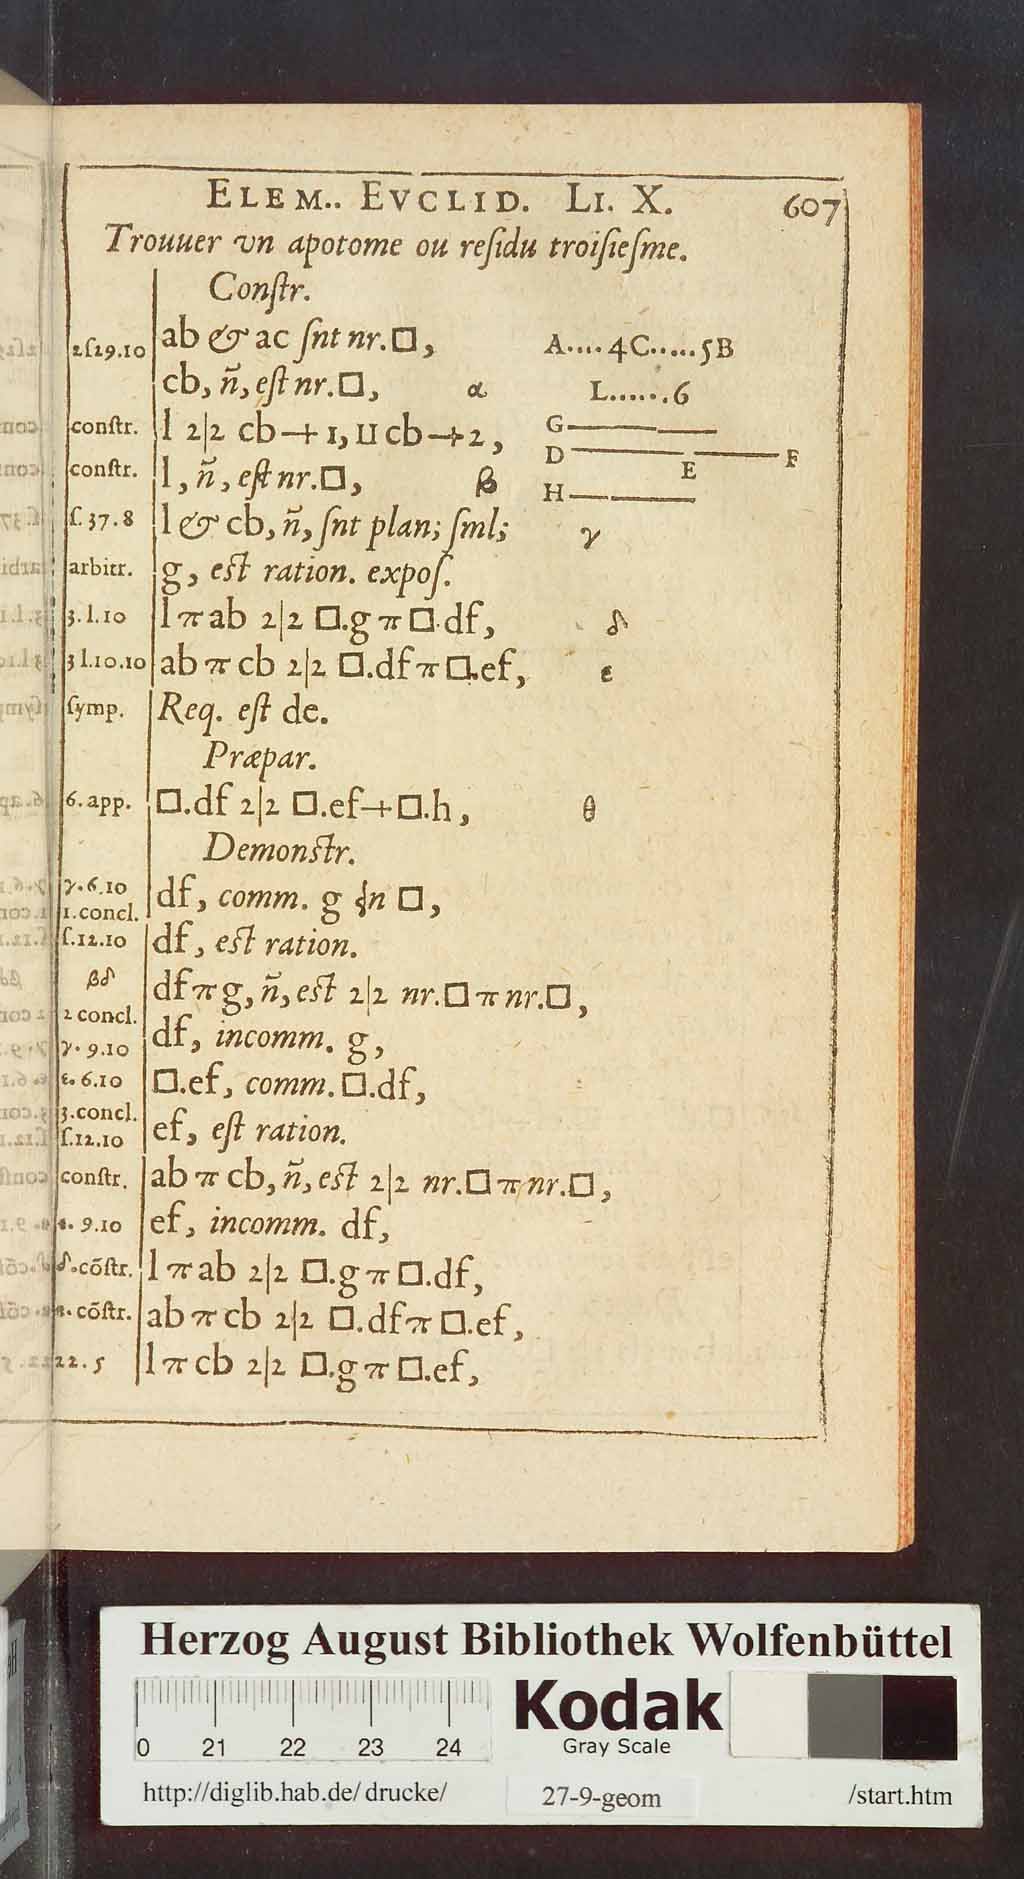 ELEM.. EVCLID. LI. X. 607
Trouuer vn apotome ou reſidu troiſieſme.
Conſtr.
2ſ29.10 ab & ac ſnt nr.□, A....4C.....5B
cb, ñ, eſt nr.□, α L......6
conſtr. l 2|2 cb+1, ⊔cb+2, G
D E F
conſtr. l, ñ, eſt nr.□, β H
ſ.37.8 l & cb, ñ, ſnt plan; ſml; γ
arbitr. g, eſt ration. expoſ.
3.l.10 l π ab 2|2 □.g π □.df, δ
3l.10.10 ab π cb 2|2 □.df π □.ef, ε
ſymp. Req. eſt de.
Præpar.
6.app. □.df 2|2 □.ef+□.h, θ
Demonſtr.
γ.6.10
1.concl. df, comm. g ɋn □,
ſ.12.10 df, eſt ration.
βδ df π g, ñ, eſt 2|2 nr.□ π nr.□,
2 concl.
γ.9.10 df, incomm. g,
ε.6.10 □.ef, comm. □.df,
3.concl.
ſ.12.10 ef, eſt ration.
conſtr. ab π cb, ñ, eſt 2|2 nr.□ π nr.□,
ε. 9.10 ef, incomm. df,
δ.cõſtr. l π ab 2|2 □.g π □.df,
ε.cõſtr. ab π cb 2|2 □.df π □.ef,
22.5 l π cb 2|2 □.g π □.ef,
Herzog August Bibliothek Wolfenbüttel
0 21 22 23 24
Kodak
Gray Scale
http://diglib.hab.de/drucke/ 27-9-geom /start.htm